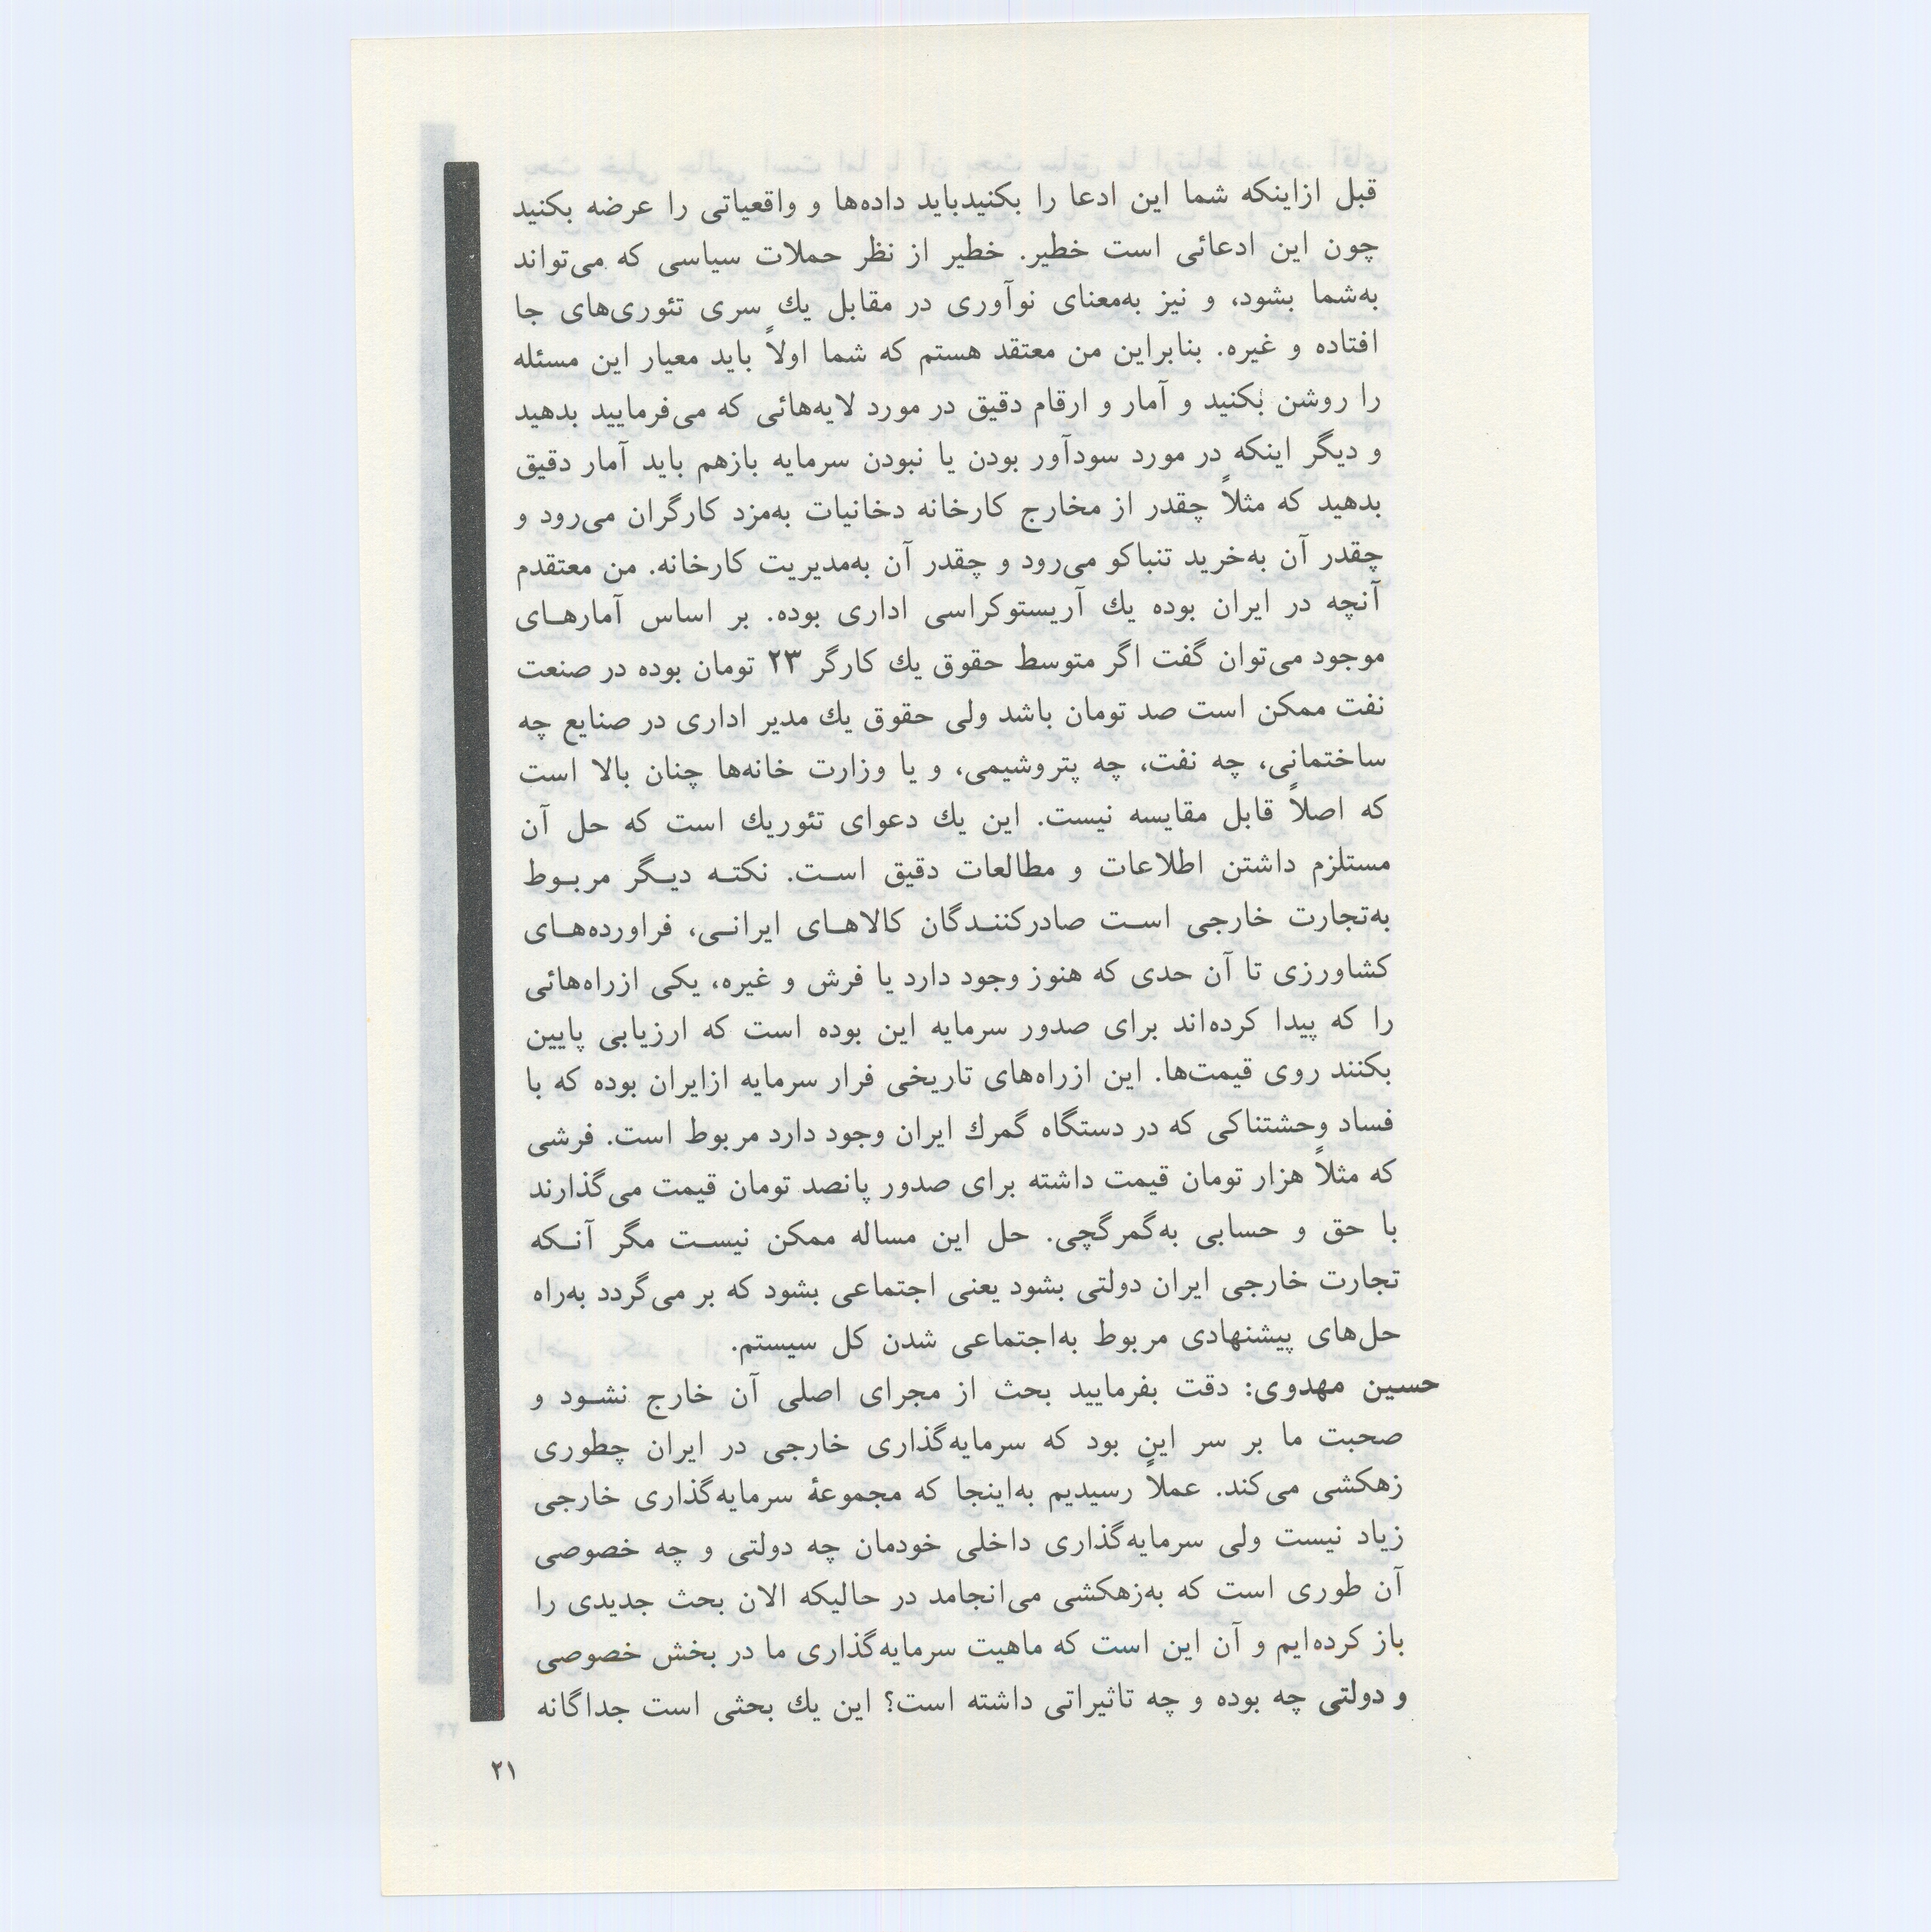 قبل ازاینکه شما این ادعا را بکنیدباید داده‌ها و واقعیاتی را عرضه بکنید
چون این ادعائی است خطیر. خطیر از نظر حملات سیاسی که می‌تواند
به‌شما بشود، و نیز به‌معنای نوآوری در مقابل یك سری تئوری‌های جا
افتاده و غیره. بنابراین من معتقد هستم که شما اولاً باید معیار این مسئله
را روشن بکنید و آمار و ارقام دقیق در مورد لایه‌هائی که می‌فرمایید بدهید
و دیگر اینکه در مورد سودآور بودن یا نبودن سرمایه بازهم باید آمار دقیق
بدهید که مثلاً چقدر از مخارج کارخانه دخانیات به‌مزد کارگران می‌رود و
چقدر آن به‌خرید تنباکو می‌رود و چقدر آن به‌مدیریت کارخانه. من معتقدم
آنچه در ایران بوده یك آریستوکراسی اداری بوده. بر اساس آمارهـای
موجود می‌توان گفت اگر متوسط حقوق یك کارگر ۲۳ تومان بوده در صنعت
نفت ممکن است صد تومان باشد ولی حقوق یك مدیر اداری در صنایع چه
ساختمانی، چه نفت، چه پتروشیمی، و یا وزارت خانه‌ها چنان بالا است
که اصلاً قابل مقایسه نیست. این یك دعوای تئوریك است که حل آن
مستلزم داشتن اطلاعات و مطالعات دقیق اسـت. نکتـه دیـگر مربـوط
به‌تجارت خارجی اسـت صادرکننـدگان کالاهـای ایرانـی، فراورده‌هـای
کشاورزی تا آن حدی که هنوز وجود دارد یا فرش و غیره، یکی ازراه‌هائی
را که پیدا کرده‌اند برای صدور سرمایه این بوده است که ارزیابی پایین
بکنند روی قیمت‌ها. این ازراه‌های تاریخی فرار سرمایه ازایران بوده که با
فساد وحشتناکی که در دستگاه گمرك ایران وجود دارد مربوط است. فرشی
که مثلاً هزار تومان قیمت داشته برای صدور پانصد تومان قیمت می‌گذارند
با حق و حسابی به‌گمرگچی. حل این مساله ممکن نیسـت مگر آنـکه
تجارت خارجی ایران دولتی بشود یعنی اجتماعی بشود که بر می‌گردد به‌راه
حل‌های پیشنهادی مربوط به‌اجتماعی شدن کل سیستم.
حسین مهدوی: دقت بفرمایید بحث از مجرای اصلی آن خارج نشـود و
صحبت ما بر سر این بود که سرمایه‌گذاری خارجی در ایران چطوری
زهکشی می‌کند. عملاً رسیدیم به‌اینجا که مجموعۀ سرمایه‌گذاری خارجی
زیاد نیست ولی سرمایه‌گذاری داخلی خودمان چه دولتی و چه خصوصی
آن طوری است که به‌زهکشی می‌انجامد در حالیکه الان بحث جدیدی را
باز کرده‌ایم و آن این است که ماهیت سرمایه‌گذاری ما در بخش خصوصی
و دولتی چه بوده و چه تاثیراتی داشته است؟ این یك بحثی است جداگانه
۲۱